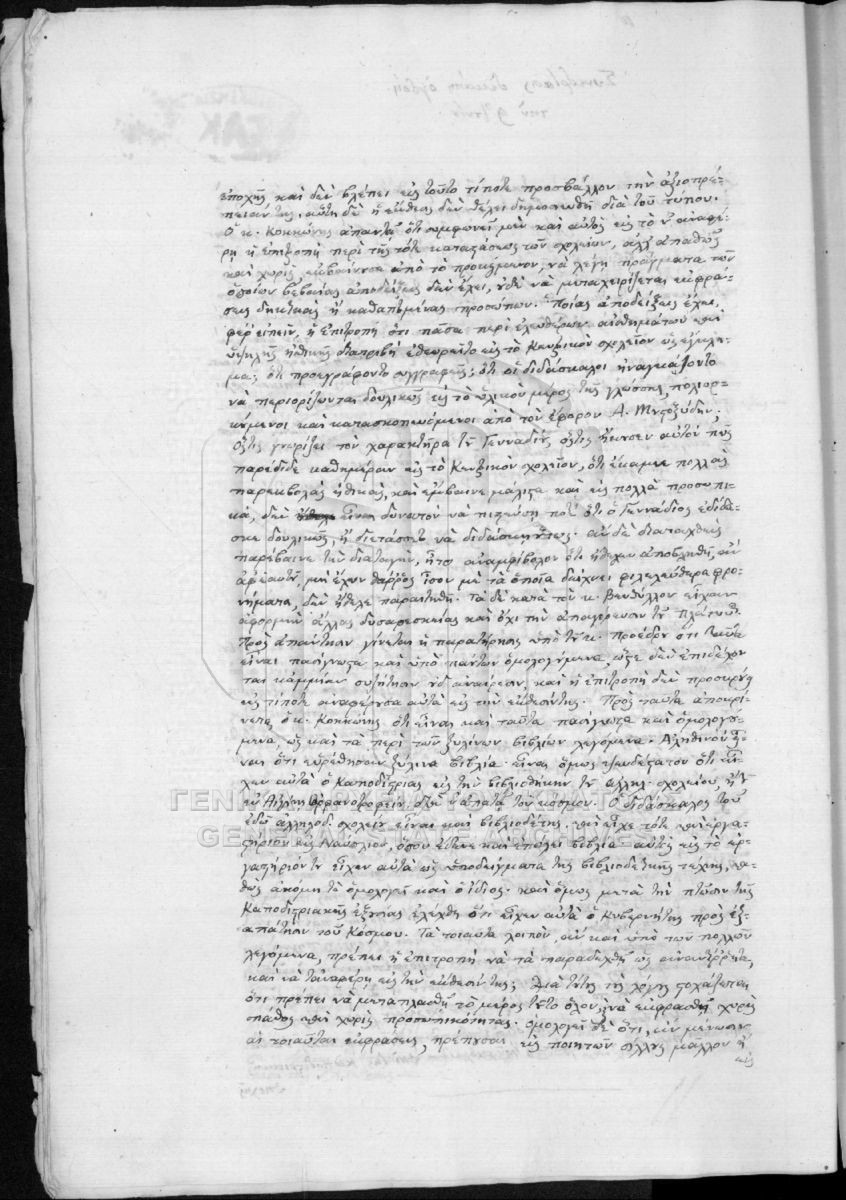 ἐποχῆς καὶ δὲν βλέπει εἰς τοῦτο τίποτε προσβάλλον τὴν ἀξιοπρέ-
πειαν της, αὕτη δὲ ἡ ἔκθεσις δὲν θέλει δημοσιευθῆ διὰ τοῦ τύπου.
Ὁ κ. Κοκκώνης ἀπαντᾷ ὅτι συμφωνεῖ μὲν καὶ αὐτὸς εἰς τὸ ν' ἀναφέ-
ρῃ ἡ ἐπιτροπὴ περὶ τῆς τότε καταστάσεως τῶν σχολείων, ἀλλ' ἀπαθῶς
καὶ χωρὶς ἐκβαίνουσα ἀπὸ τὸ προκείμενον, νὰ λέγῃ πράγματα τῶν
ὁποίων βεβαίας ἀποδείξεις δὲν ἔχει, οὐδὲ νὰ μεταχειρίζεται ἐκφρά-
σεις δηκτικὰς ἢ καθαπτομένας προσώπων. Ποίας ἀποδείξεις ἔχει,
φέρ' εἰπεῖν, ἡ ἐπιτροπὴ ὅτι πᾶσα περὶ ἐλευθέρων αἰσθημάτων καὶ
ὑψηλῆς ἠθικῆς διατριβὴ ἐθεωρεῖτο εἰς τὸ Κεντρικὸν σχολεῖον ὡς ἔγκλη-
μα; ὅτι προεγράφοντο συγγραφεῖς; ὅτι οἱ διδάσκαλοι ἠναγκάζοντο
νὰ περιορίζωνται δουλικῶς εἰς τὸ ὑλικὸν μέρος τῆς γλώσσης, πολιορ-
κούμενοι καὶ κατασκοπευόμενοι ἀπὸ τὸν ἔφορον Α. Μουστοξύδην;
Ὅστις γνωρίζει τὸν χαρακτῆρα τοῦ Γενναδίου, ὅστις ἤκουσεν αὐτὸν πῶς
παρέδιδε καθημέραν εἰς τὸ Κεντρικὸν σχολεῖον, ὅτι ἔκαμνε πολλὰς
παρεκβολὰς ἠθικάς, καὶ ἔμβαινε μάλιστα καὶ εἰς πολλὰ προσωπι-
κά, δὲν εἶναι δυνατὸν νὰ πιστεύσῃ ποτὲ ὅτι ὁ Γεννάδιος ἐδίδα-
σκε δουλικῶς, ἢ διετάσσετο νὰ διδάσκῃ οὕτως· ἂν δὲ διαταχθεὶς
παρέβαινε τὴν διαταγήν, ἦτον ἀναμφίβολον ὅτι ἤθελεν ἀποβληθῆ, ἂν
ἀφ' ἑαυτοῦ, μὴ ἔχων θάρρος ἴσον μὲ τὰ ὁποῖα δείχνει φιλελεύθερα φρο-
νήματα, δὲν ἤθελε παραιτηθῆ. Τὰ δὲ κατὰ τὸν κ. Βενθύλον εἶχαν
ἀφορμὴν ἄλλας δυσαρεσκείας καὶ ὄχι τὴν ἀπαγόρευσιν τοῦ Πλάτωνος.
Πρὸς ἀπάντησιν γίνεται ἡ παρατήρησις ὑπὸ τοῦ κ. Προέδρου ὅτι ταῦτα
εἶναι πασίγνωστα καὶ ὑπὸ πάντων ὁμολογούμενα, ὥστε δὲν ἐπιδέχον-
ται καμμίαν συζήτησιν οὐδ' ἀναίρεσιν, καὶ ἡ ἐπιτροπὴ δὲν προσκρούει
εἰς τίποτε ἀναφέρουσα αὐτὰ εἰς τὴν ἔκθεσίν της. Πρὸς ταῦτα ἀποκρί-
νεται ὁ κ. Κοκκώνης ὅτι εἶναι καὶ ταῦτα πασίγνωστα καὶ ὁμολογού-
μενα, ὡς καὶ τὰ περὶ τῶν ξυλίνων βιβλίων λεγόμενα. Ἀληθινὸν εἶ-
ναι ὅτι εὑρέθησαν ξύλινα βιβλία· εἶναι ὅμως ψευδέστατον ὅτι εἶ-
χεν αὐτὰ ὁ Καποδίστριας εἰς τὴν βιβλιοθήκην τοῦ ἀλληλ. σχολείου τοῦ
ἐν Αἰγίνῃ Ὀρφανοτροφείου, διὰ ν' ἀπατᾷ τὸν κόσμον. Ὁ διδάσκαλος τοῦ
ἐδῶ ἀλληλοδ. σχολείου εἶναι καὶ βιβλιοδέτης, καὶ εἶχε τότε καὶ ἐργα-
στήριον εἰς Ναύπλιον, ὅσου ἔδενε καὶ ἐπώλει βιβλία· αὐτὸς εἰς τὸ ἐρ-
γαστήριόν του εἶχεν αὐτὰ ὡς ὑποδείγματα τῆς βιβλιοδετικῆς τέχνης, κα-
θὼς ἀκόμη τὸ ὁμολογεῖ καὶ ὁ ἴδιος· καὶ ὅμως μετὰ τὴν πτῶσιν τῆς
Καποδιστριακῆς ἐξουσίας ἐλέχθη ὅτι εἶχεν αὐτὰ ὁ Κυβερνήτης πρὸς ἐξ-
απάτησιν τοῦ Κόσμου. Τὰ τοιαῦτα λοιπόν, ἂν καὶ ὑπὸ τῶν πολλῶν
λεγόμενα, πρέπει ἡ ἐπιτροπὴ νὰ τὰ παραδεχθῇ ὡς ἀναντίρρητα,
καὶ νὰ τ' ἀναφέρῃ εἰς τὴν ἔκθεσίν της; Διὰ τούτους τοὺς λόγους στοχάζεται
ὅτι πρέπει νὰ μεταπλασθῇ τὸ μέρος τοῦτο ὅλον, νὰ ἐκφρασθῇ χωρὶς
πάθος καὶ χωρὶς προσωπικότητας. Ὁμολογεῖ δὲ ὅτι, ἐὰν μένωσιν
αἱ τοιαῦται ἐκφράσεις, πρέπουσαι εἰς ποιητῶν σίλλους μᾶλλον ἢ
εἰς
ΓΕΝΙΚΑ ΑΡΧΕΙΑ ΤΟΥ ΚΡΑΤΟΥΣ
GENERAL STATE ARCHIVES